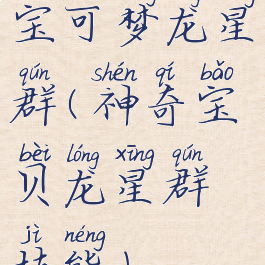 宝可梦龙星
qún shén qí bǎo
群(神奇宝
bèi lóng xīng qún
贝龙星群
jì néng
技能)